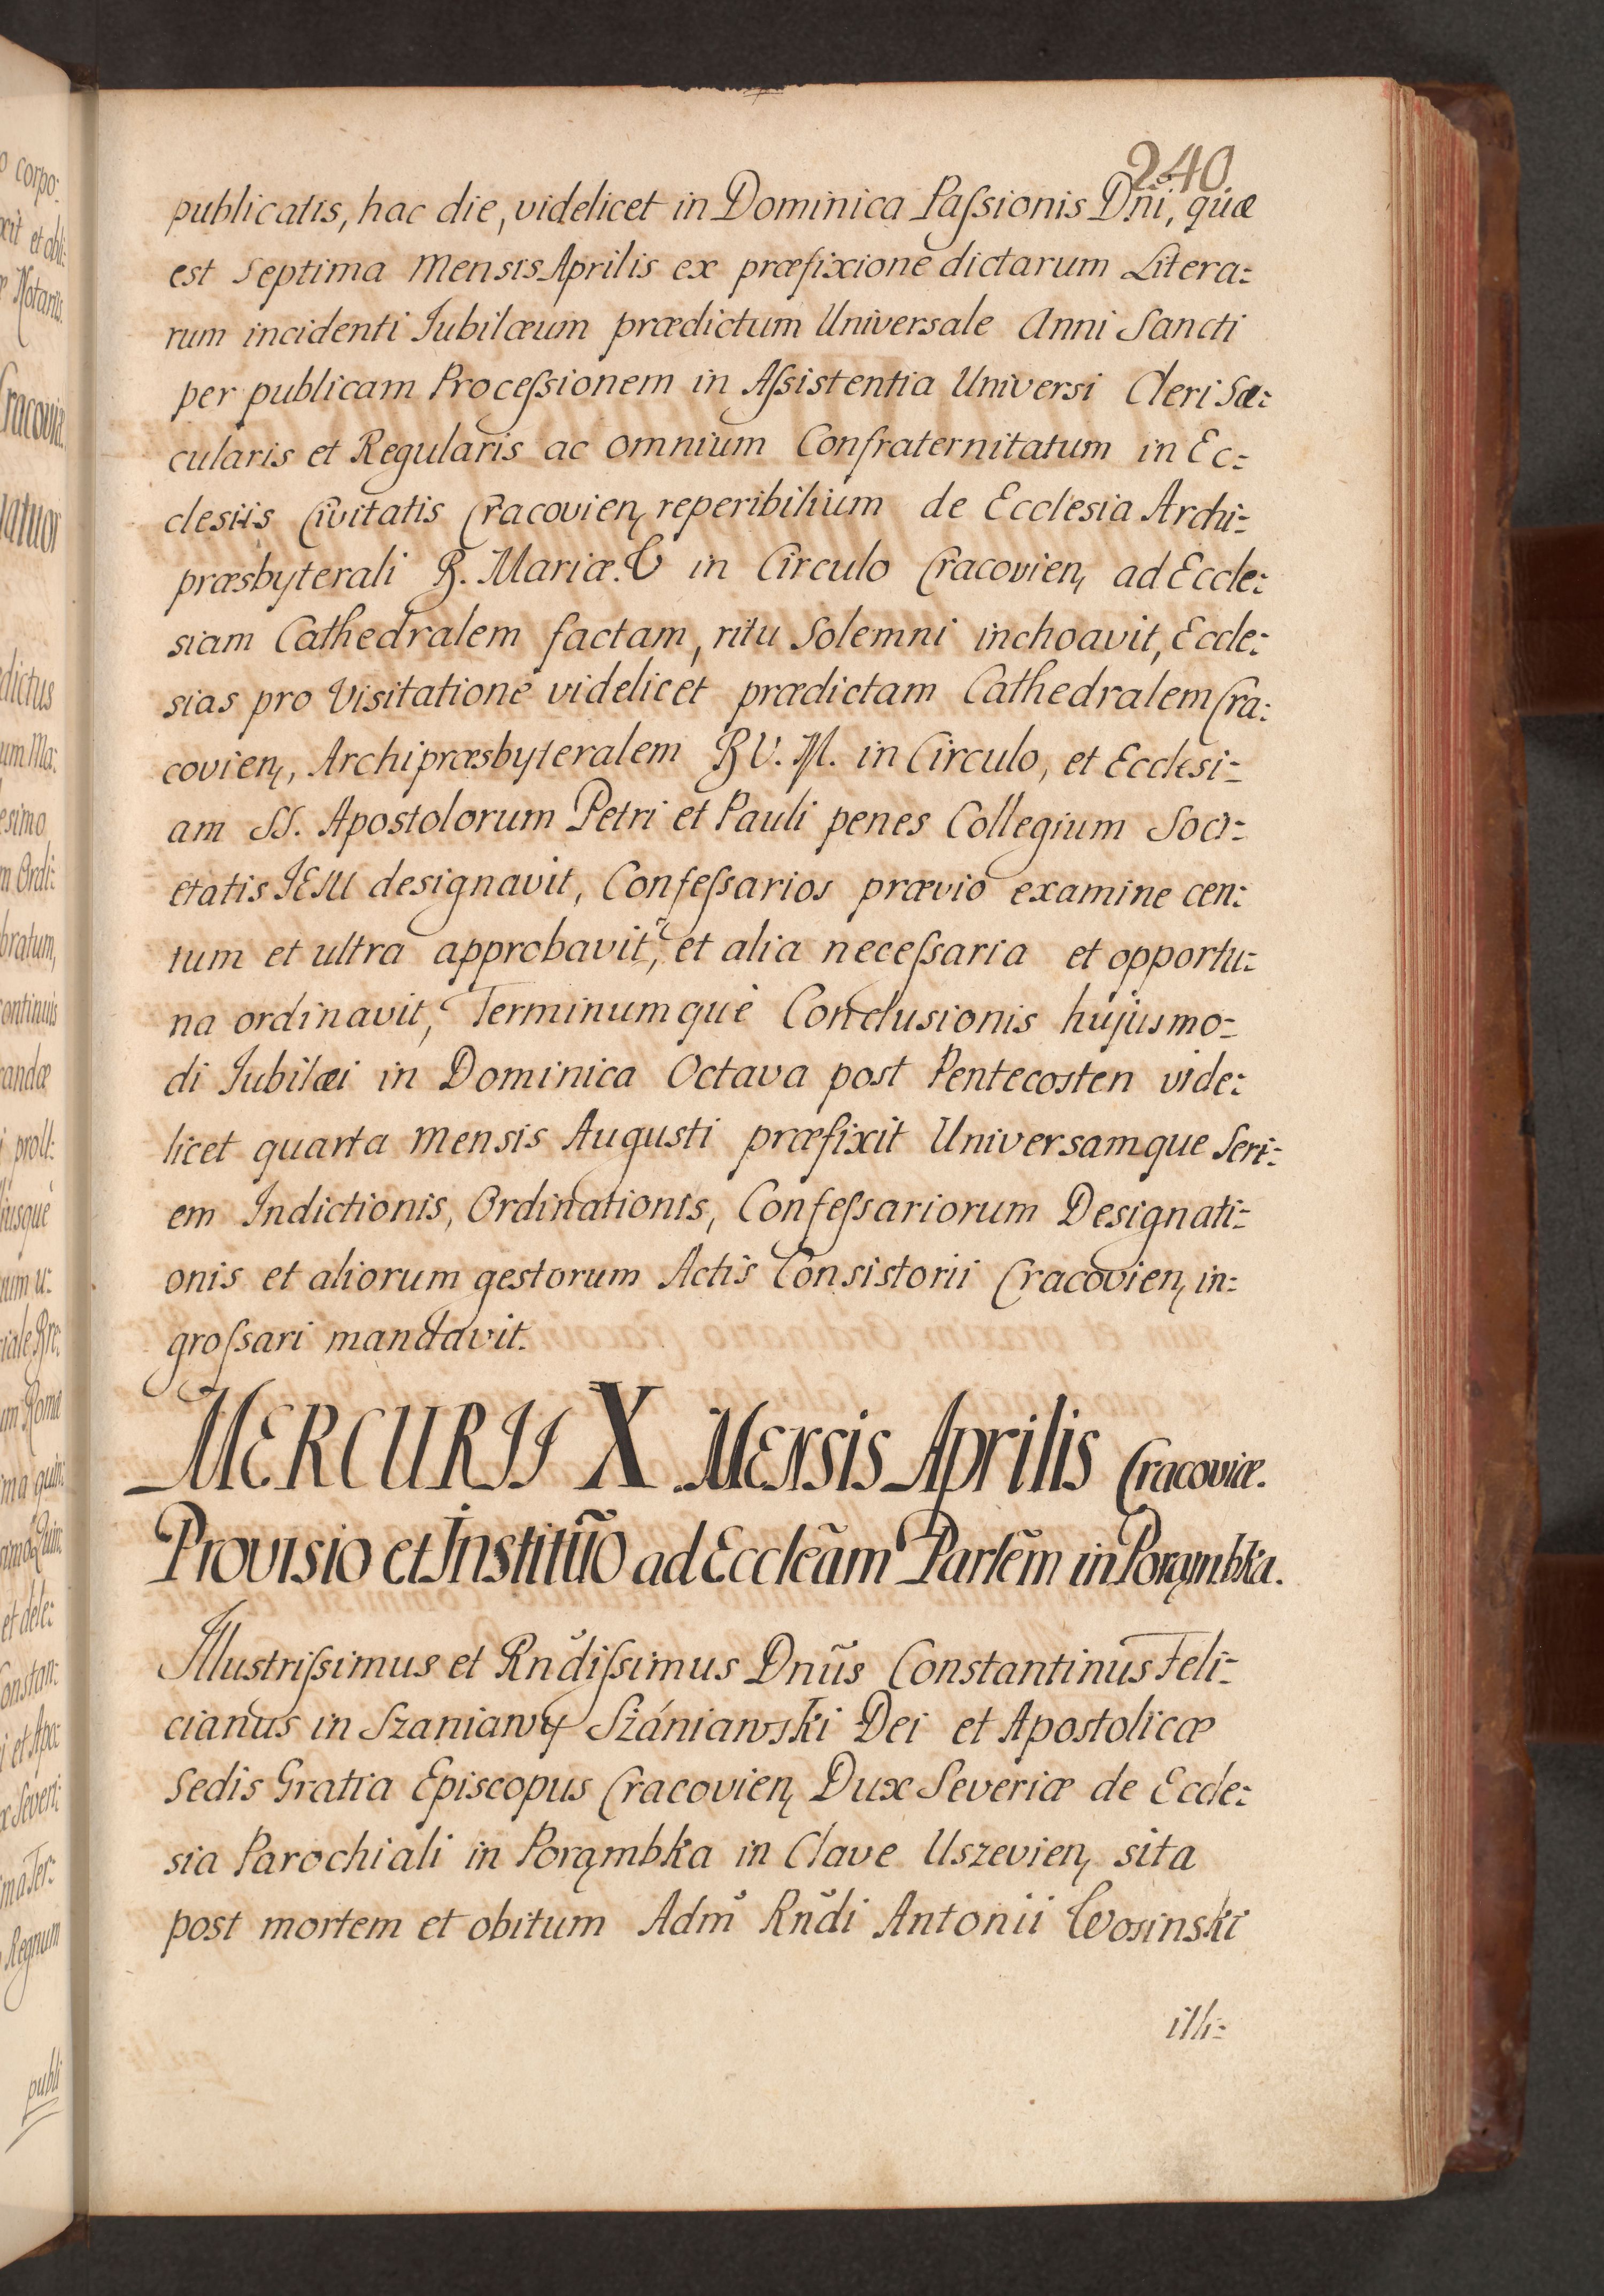 240
publicatis, hac die, videlicet in Dominica Paſsionis Dni, quæ
est Septima Mensis Aprilis ex præfixione dictarum Litera:
rum incidenti Iubilæum prædictum Universale Anni Sancti
per publicam Proceſsionem in Aſsistentia Universi Cleri Sæ:
cularis et Regularis ac omnium Confraternitatum in Ec:
clesiis Civitatis Cracovien, reperibilium de Ecclesia Archi:
præsbyterali B. Mariæ. V in Circulo Cracovien, ad Eccle:
siam Cathedralem factam, ritu Solemni inchoavit, Eccle:
sias pro Visitatione videlicet prædictam Cathedralem Cra:
covien, Archipræsbyteralem B V. M. in Circulo, et Ecclesi:
am SS. Apostolorum Petri et Pauli penes Collegium Soci:
etatis IESU designavit, Confeſsarios prævio examine cen:
tum et ultra approbavit, et alia neceſsaria et opportu:
na ordinavit, Terminumquè Conclusionis hujusmo:
di Iubilæi in Dominica Octava post Pentecosten vide:
licet quarta Mensis Augusti præfixit Universamque Seri:
em Indictionis, Ordinationis, Confeſsariorum Designati:
onis et aliorum gestorum Actis Consistorii Cracovien, in:
groſsari mandavit.
MERCURII X Mensis Aprilis Cracoviæ.
Provisio et Institũo ad Eccleãm Parlẽm in Porąmbka.
Illustriſsimus et Rñdiſsimus Dnũs Constantinus Feli:
cianus in Szaniawy Szániawski Dei et Apostolicæ
Sedis Gratia Episcopus Cracovien, Dux Severiæ de Eccle:
sia Parochiali in Porąmbka in Clave Uszevien, sita
post mortem et obitum Adm̃ Rñdi Antonii Wosinski
illi: